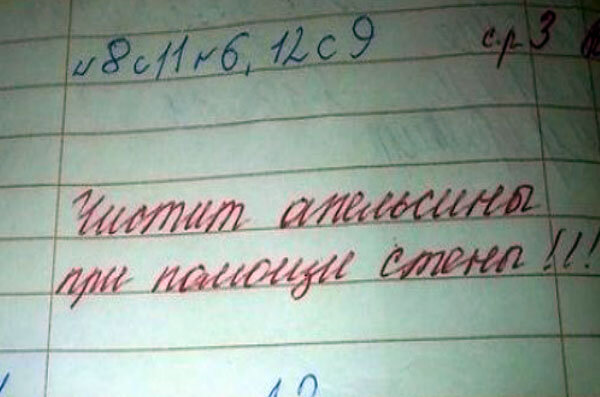 №8 с11 №6, 12 с9 ср3
Чистит апельсины
при помощи стены!!!